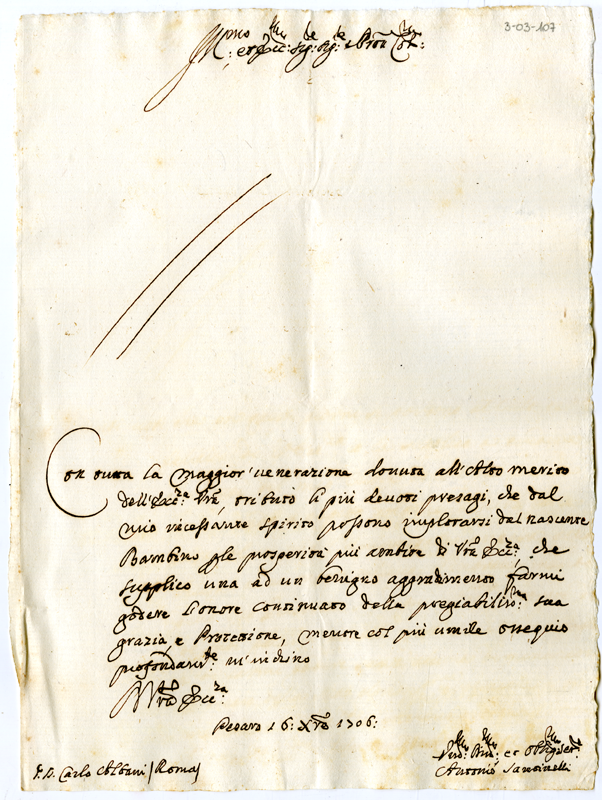 3-03-107
Ill:mo et Ecc:mo Sig:re Sig:re e Pron Col:mo
Con tutta la maggior venerazione dovuta all'Alto merito
dell'Ecc:za Vra, tributo li più devoti presagi, che dal
mio incessante spirito possono implorarsi dal nascente
Bambino p le prosperità più ambite di Vra Ecc:za, che
supplico una ad un benigno aggradimento farmi
godere l'onore continuato della pregiabiliss:ma sua
grazia, e Protezione, mentre col più umile ossequio
profondam:te m'inchino
Di Vra Ecc:za
Pesaro 16: Xbre 1706:
Um: Div: et Oblig: Ser:
D. Carlo Albani /Roma/
Antonio Santinelli